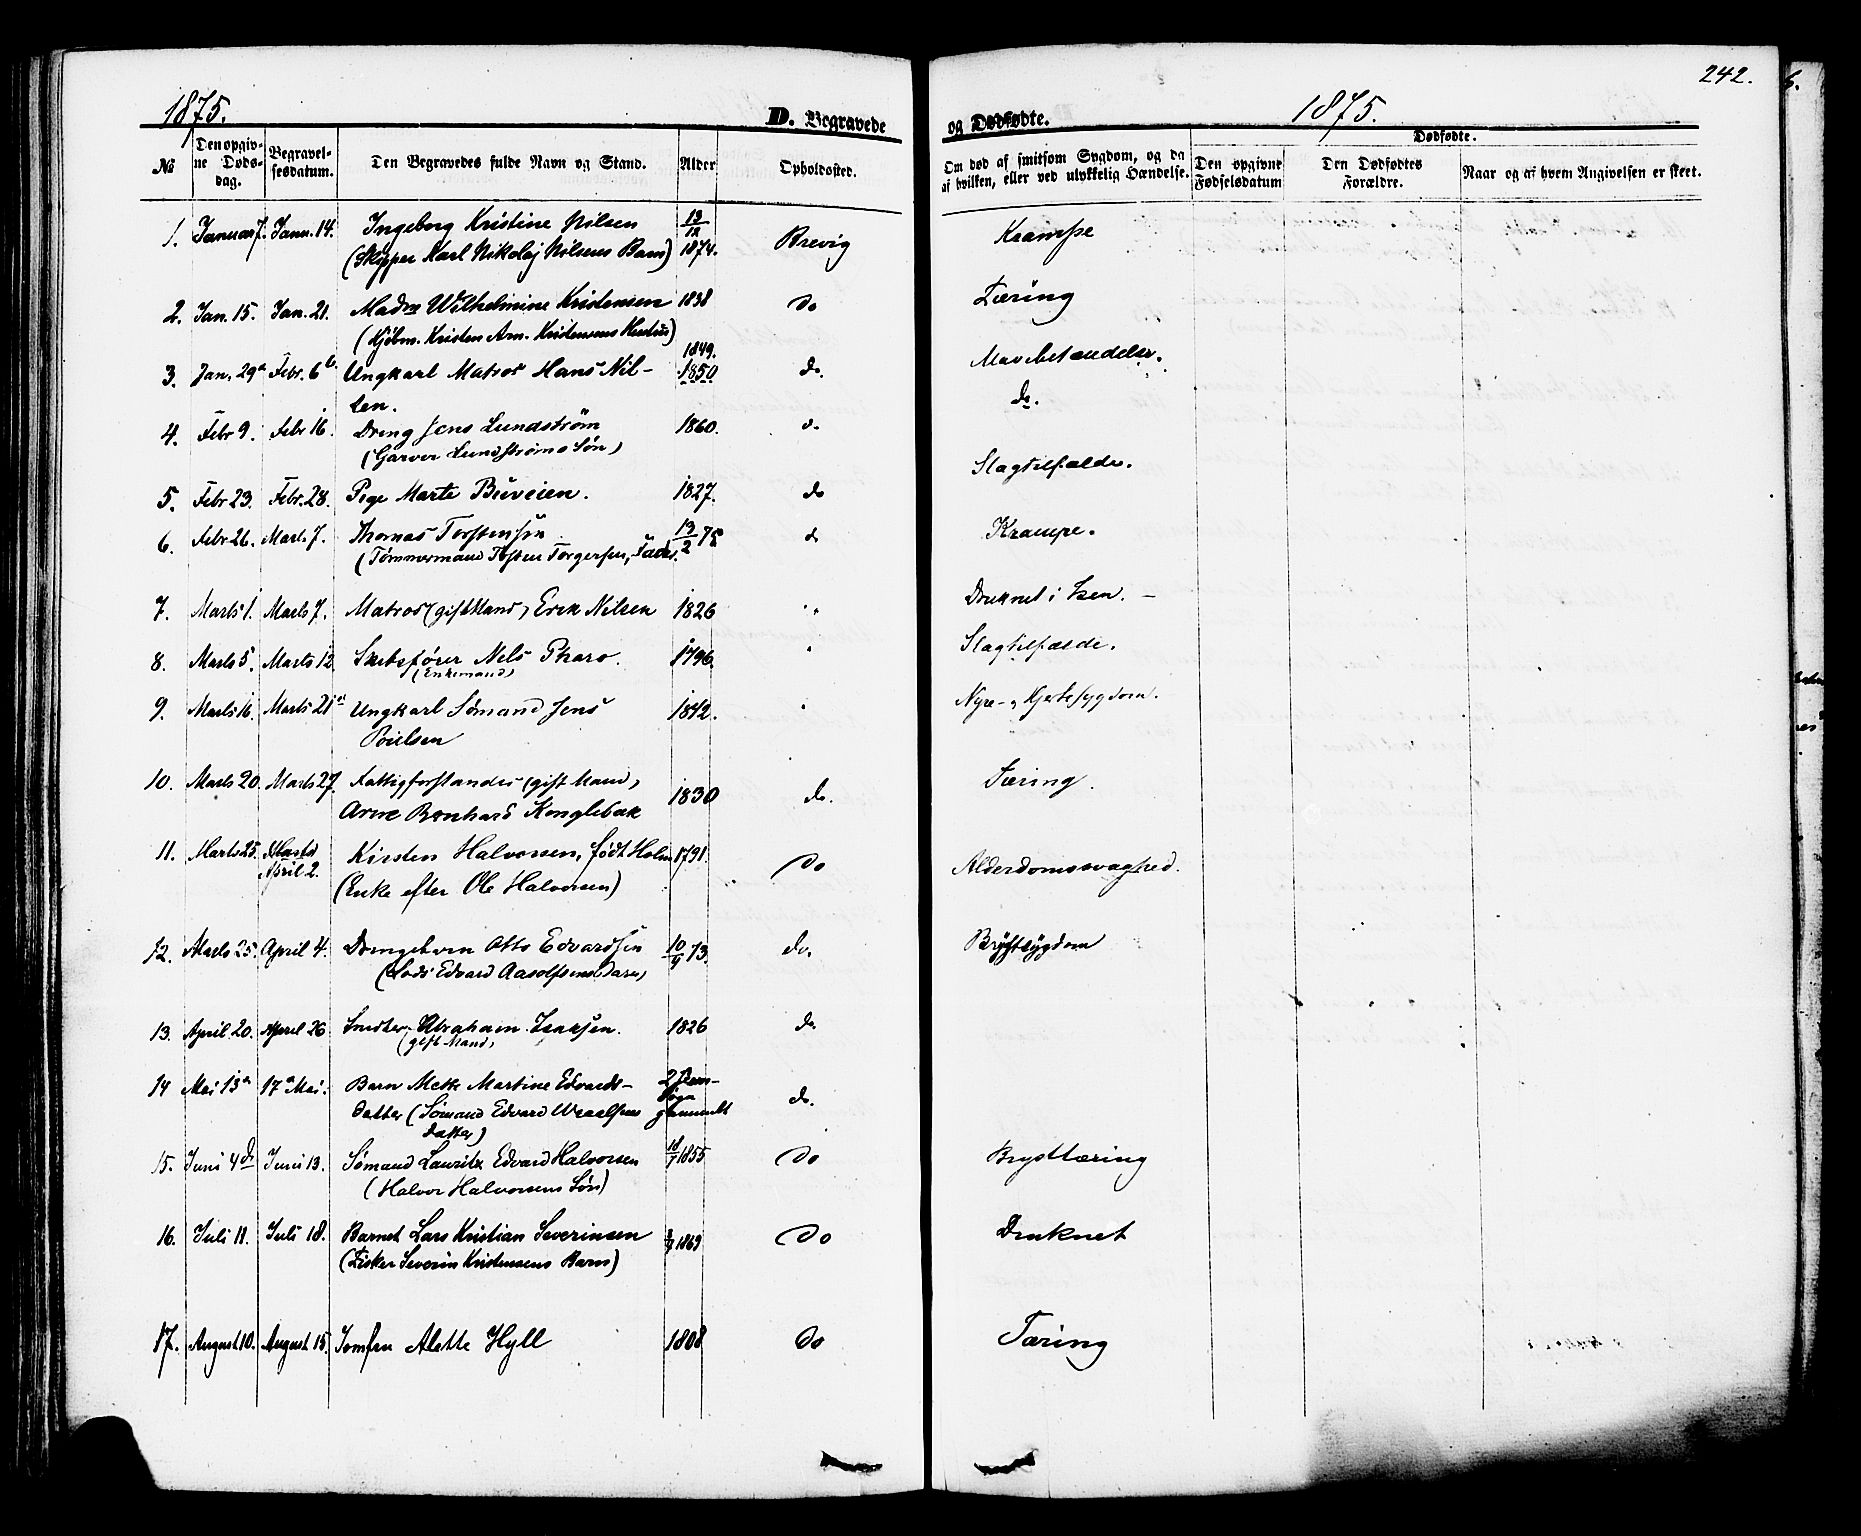 1875.
D. Begravede
og Dødfødte.
1875.
242.
№
Den opgivne Dødsdag.
Begravelsesdatum.
Den Begravedes fulde Navn og Stand.
Alder
Opholdssted.
Om død af smitsom Sygdom, og da af hvilken, eller ved ulykkelig Hændelse.
Dødfødte.
Den opgivne Fødselsdatum
Den Dødfødtes Forældre.
Naar og af hvem Angivelsen er skeet.
1. Januar 7. Janu. 14. Ingeborg Kristine Nilsen 19/12 1874. Brevig Krampe
(Skipper Karl Nikolaj Nilsens Barn)
2. Jan. 15. Jan. 21. Madm Wilhelmine Kristensen 1838 Do Tæring
(Kjøbm. Kristen Arn. Kristensens Hustru)
3. Jan. 29 Febr. 6 Ungkarl Matros Hans Nil- 1849. 1850 do. Mavebetændelse.
sen.
4. Febr 9. Febr 16. Dreng Jens Lundstrøm 1860. do.
(Garver Lundstrøms Søn)
5. Febr 23. Febr. 28. Pige Marte Buveien. 1827. do Slagtilfælde.
6. Febr 26. Mart. 7. Thomas Torstensen 13/2 75 d Krampe.
(Tømmermand Tosten Torgersen, Fader.
7. Marts 1. Marts 7. Matros (gift Mand) Erik Nilsen 1826 " Druknet i Isen. –
8. Marts 5. Marts 12 Skibsfører Nels Pharo. 1796. " Slagtilfælde.
(Enkemand)
9. Marts 16. Marts 21 Ungkarl Sømand Jens 1842. " Nyre- & Hjertesygdom.
Poulsen
10. Marts 20. Marts 27. Fattigforstander (gift Mand) 1830 do. Tæring.
Arne Bernhard Konglebak
11. Marts 25. Marts April 2. Kirsten Halvorsen, født Holm 1791. Do Alderdomssvaghed.
(Enke efter Ole Halvorsen)
12. Marts 25. April 4. Drengebarn Otto Edvardsen 10/9 73. do. Brystsygdom
(Lods Edvard Aasolfsens Barn)
13. April 20. April 26 Smeder Abraham Isaksen. 1826 do.
(gift Mand)
14 Mai 13 17 Mai. Barn Mette Martine Edvards- 2 gammelt do.
datter (Sømand Edvard
datter)
15. Juni 4 Juni 13. Sømand Lauritz Edvard Halvorsen 1855 Do Brysttæring
(Halvor Halvorsens Søn)
16. Juli 11. Juli 18. Barnet Lars Kristian Severinsen 1869 Do Druknet
(Fisker Severin Kristensens Barn)
17. August 10. August 15. Jomfru Alette Hyll 1808 Do Tæring